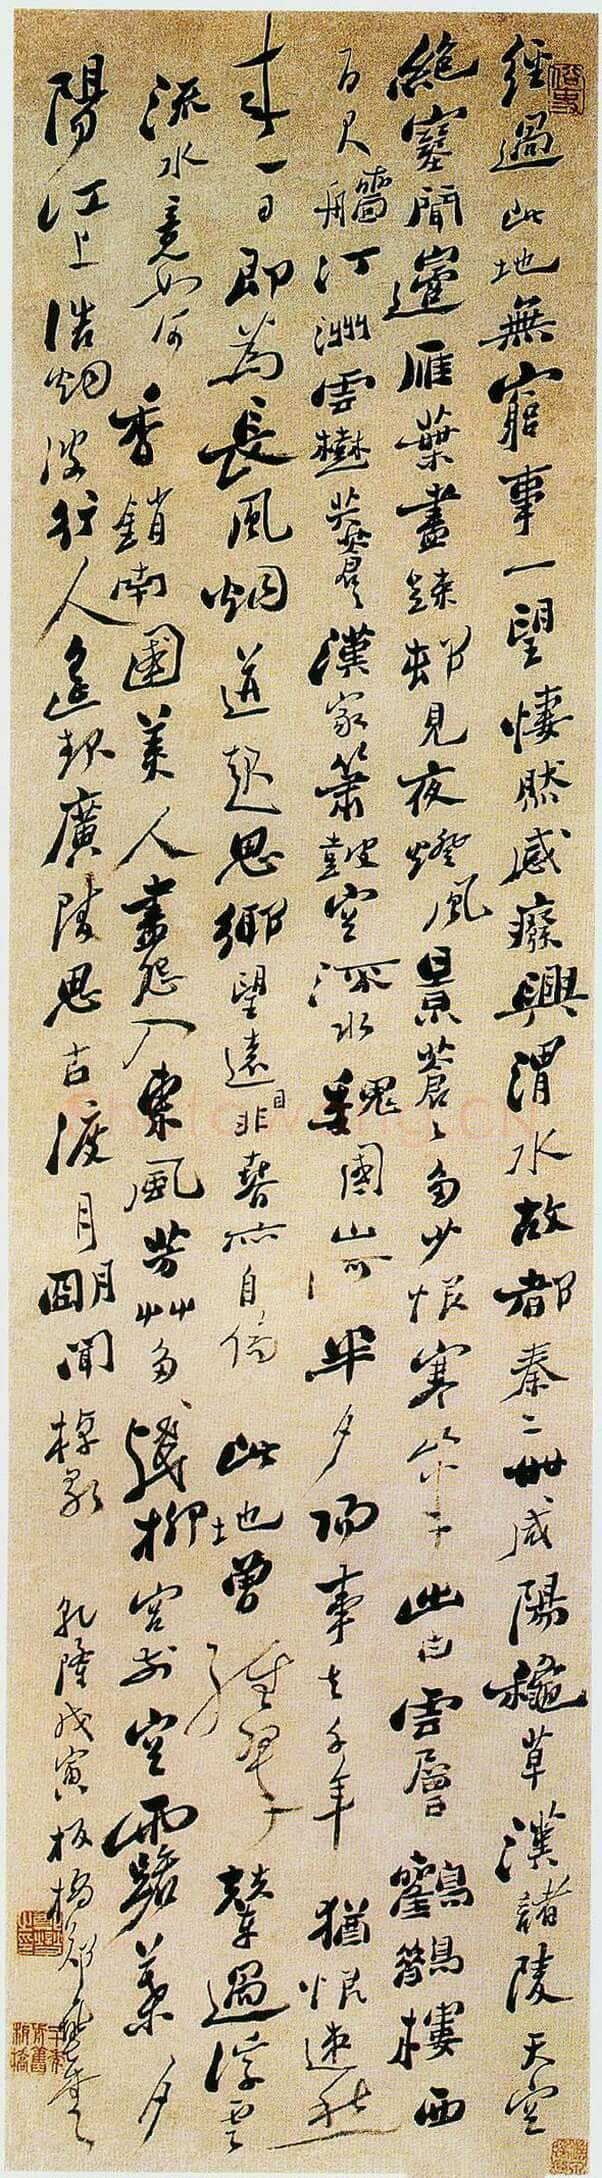 經過此地無窮事一望悽然感癈興渭水故都秦二世咸陽穐草漢諸陵天空
絶塞聞邊雁葉盡疎邨見夜燈風景蒼々多少恨寒山半出白雲層鸛鵲樓西
百尺艢汀洲雲樹共蒼々漢家簫鼓空流水魏國山河半夕陽事去千年猶恨速愁
來一日即為長風烟並起思鄉望遠目非春亦自傷此地曾經翠輦過浮雲
流水竟如何香銷南國美人盡怨入東風芳草多殘柳宮前空露葉夕
陽江上浩烟波行人遙起廣陵思古渡月明聞棹歌 乾隆戊寅板橋鄭燮書